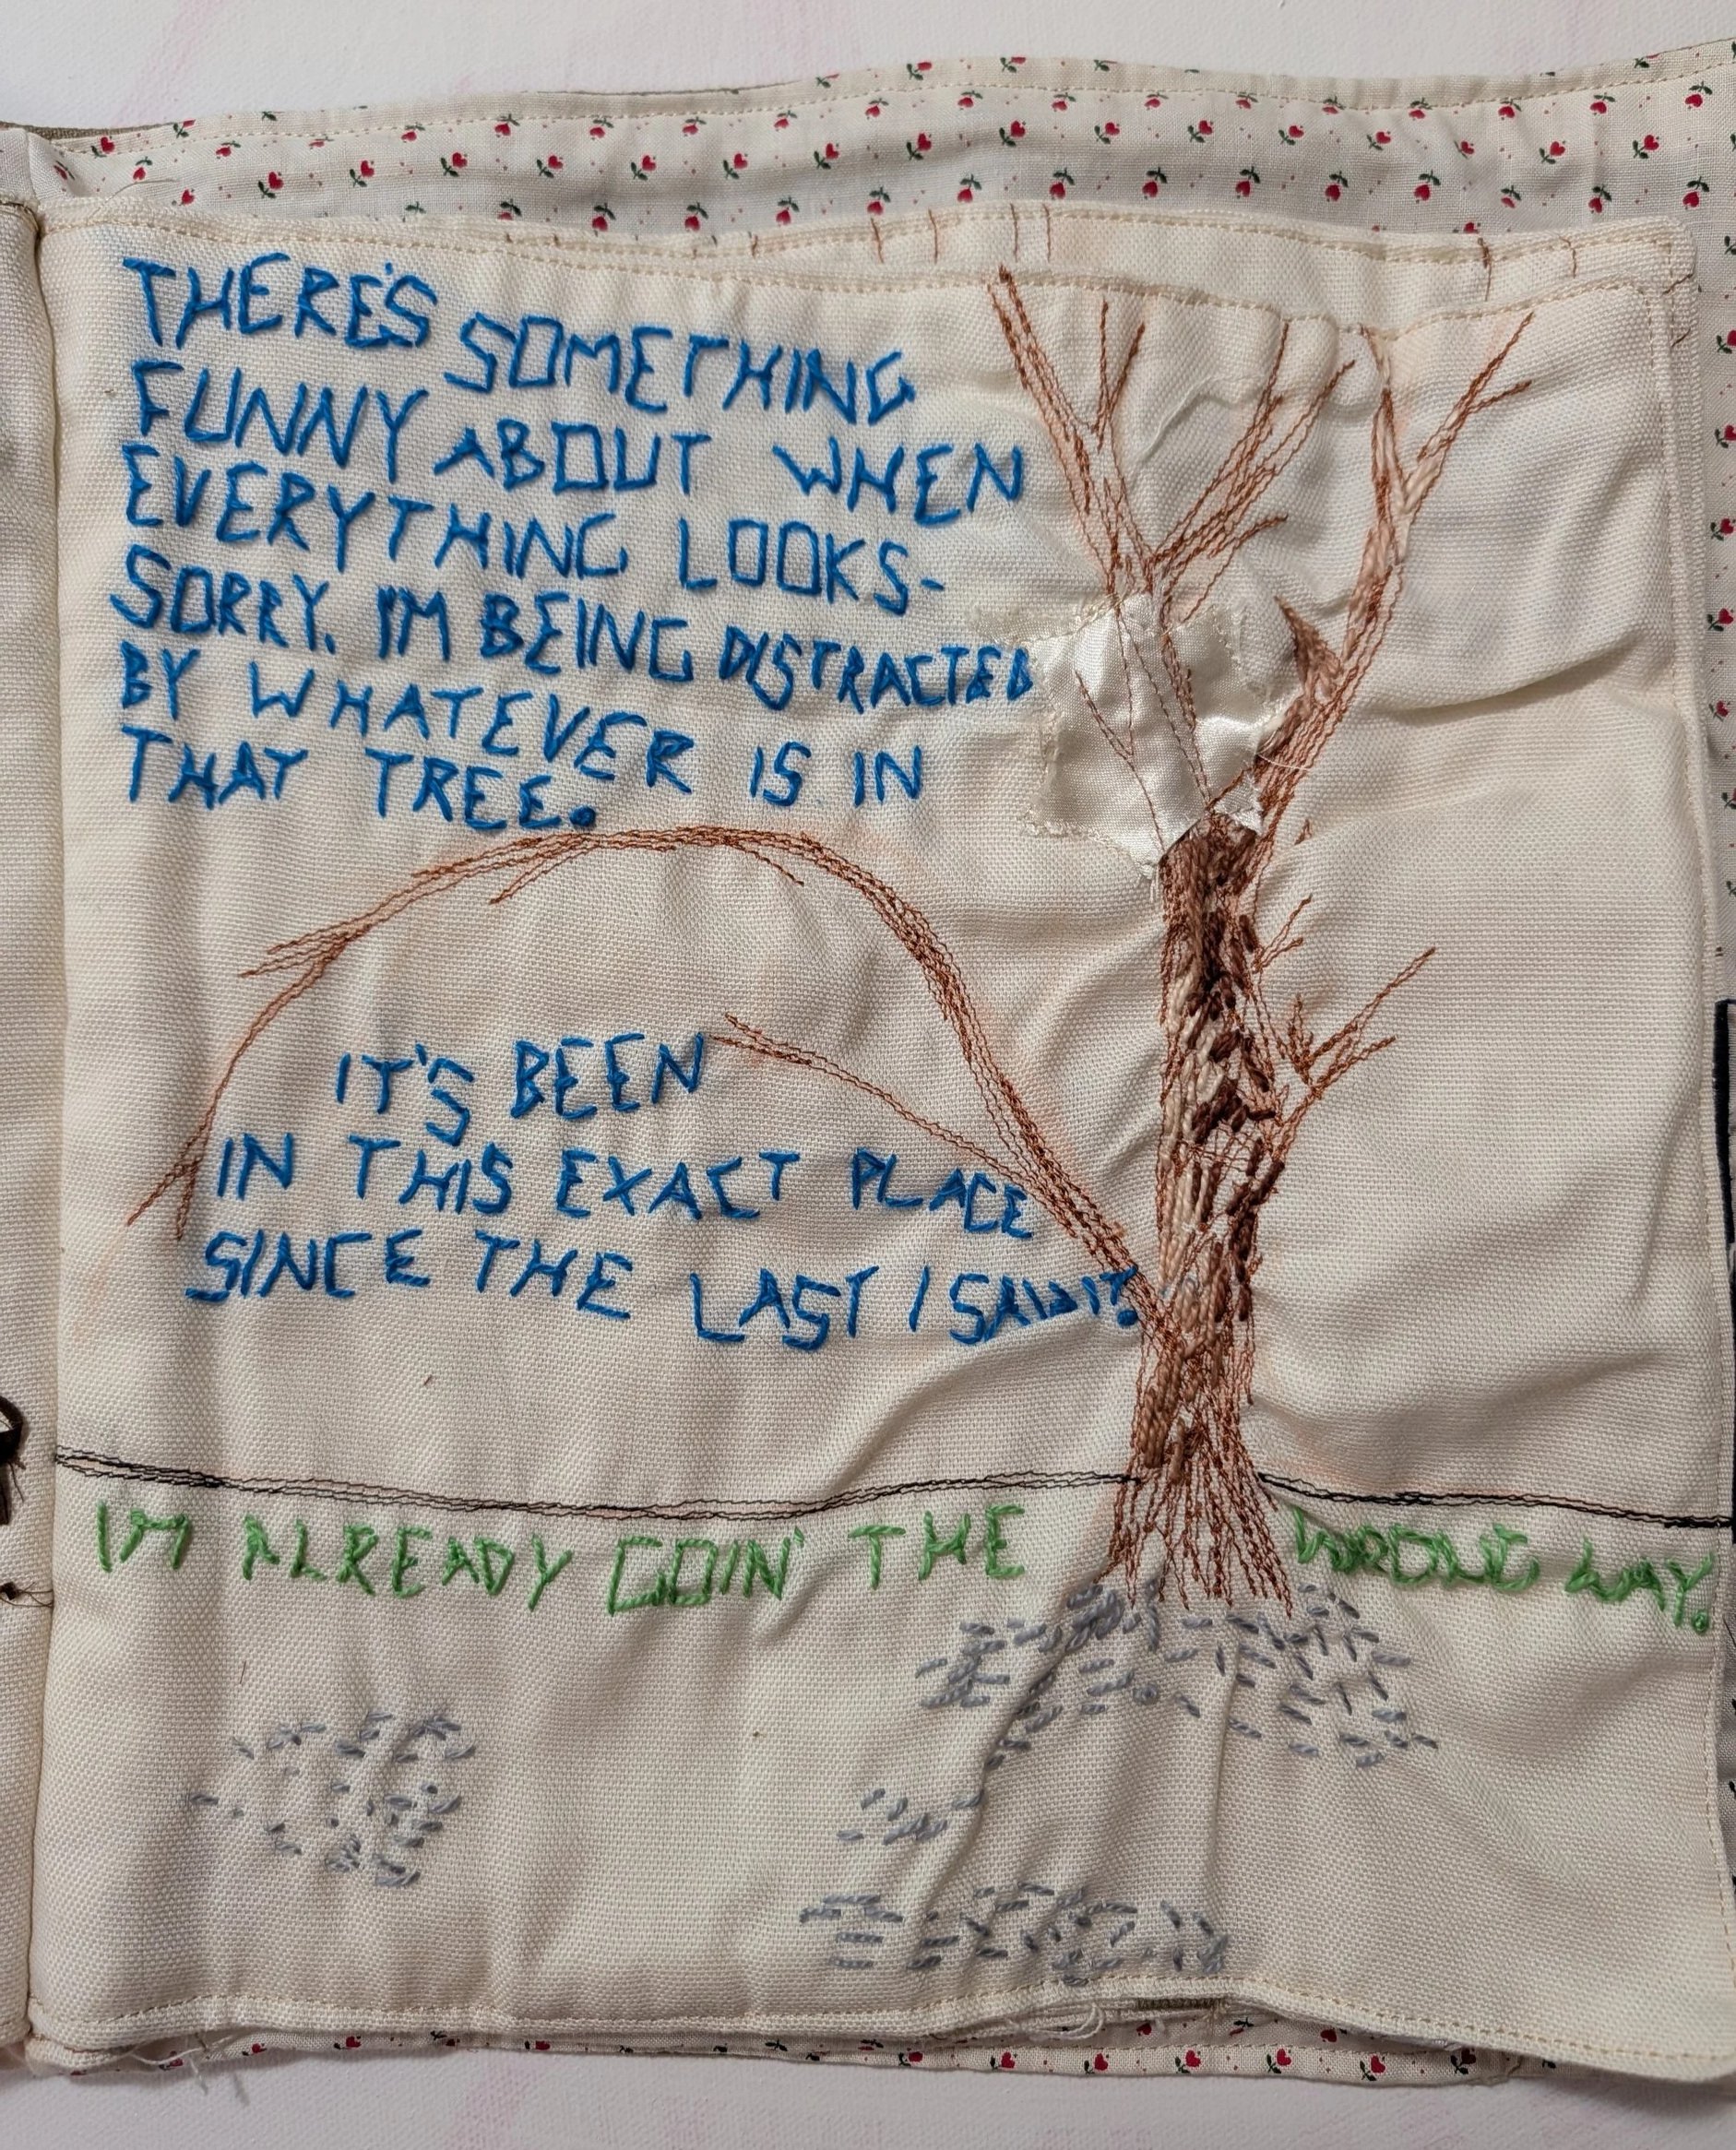 THERE'S SOMETHING
FUNNY ABOUT WHEN
EVERYTHING LOOKS-
SORRY. I'M BEING DISTRACTED
BY WHATEVER IS IN
THAT TREE.
IT'S BEEN
IN THIS EXACT PLACE
SINCE THE LAST I SAW IT.
I'M ALREADY GOIN' THE WRONG WAY.